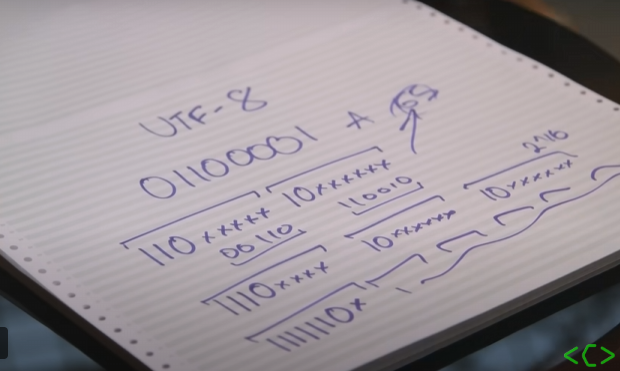 UTF-8
01100001 A 65
110xxxxx 10xxxxxx
00110 110010
1110xxxx 10xxxxxx 10xxxxxx
1111110x
<C>